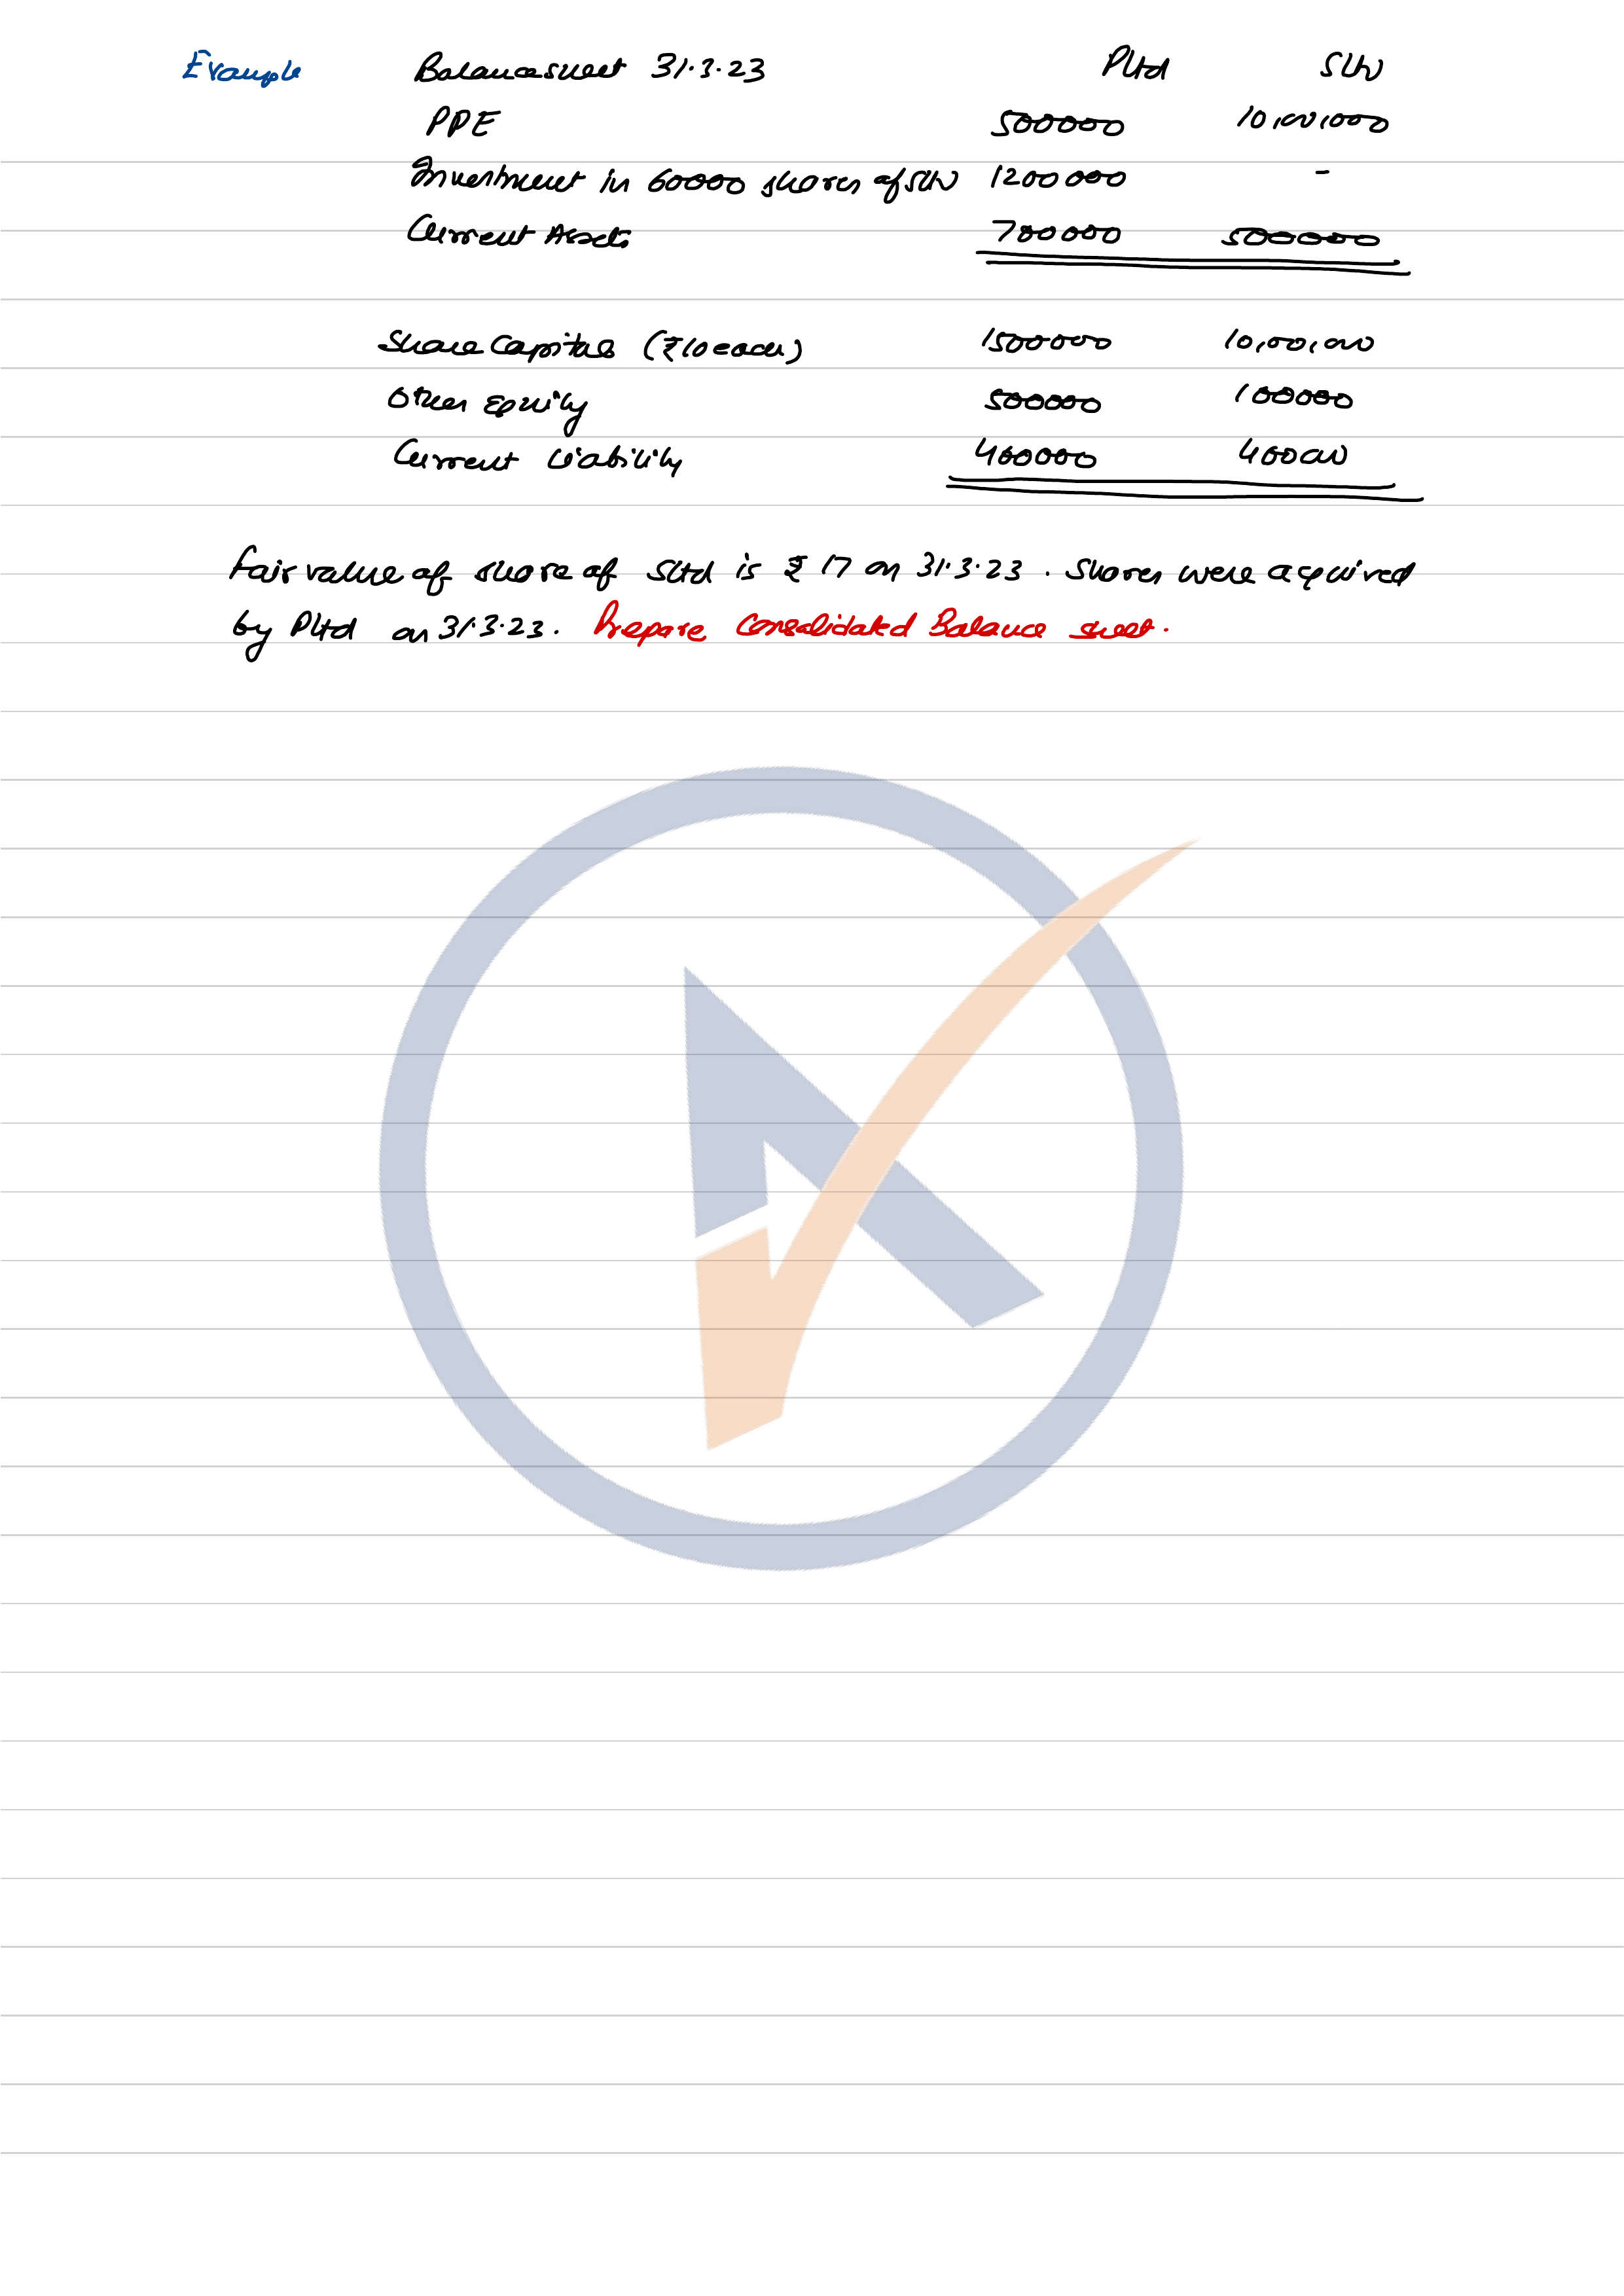 Example Balancesheet 31.3.23 Pltd Sltd
PPE 500000 10,00,000
Investment in 60000 shares of Sltd 1200000 -
Current Assets 700000 500000
Share Capital (₹10 each) 1500000 10,00,000
Other Equity 500000 100000
Current Liability 400000 400000
Fair value of share of Sltd is ₹ 17 on 31.3.23. Shares were acquired
by Pltd on 31.3.23. Prepare Consolidated Balance sheet.